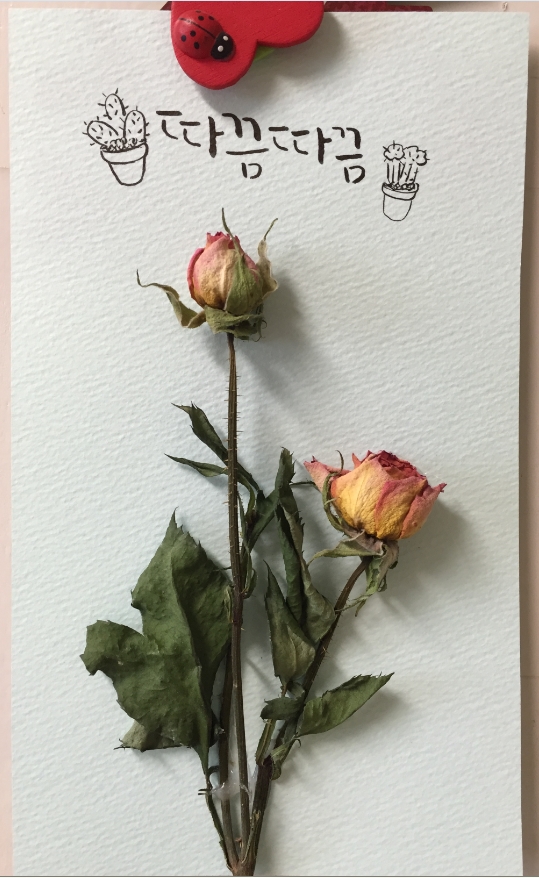 따끔따끔